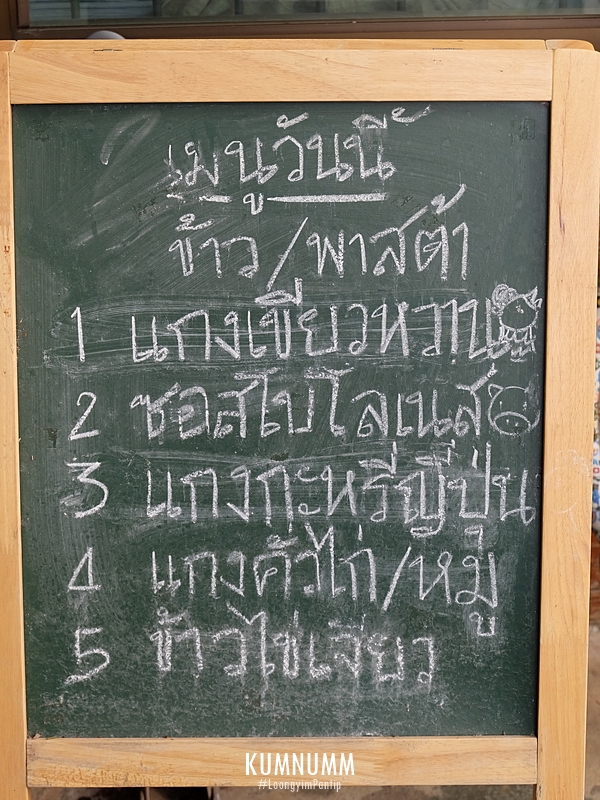 เมนูวันนี้
ข้าว/พาสต้า
1 แกงเขียวหวาน
2 ซอสโบโลเนส
3 แกงกะหรี่ญี่ปุ่น
4 แกงคั่วไก่/หมู
5 ข้าวไข่เจียว
KUMNUMM
#LoongyimPantip